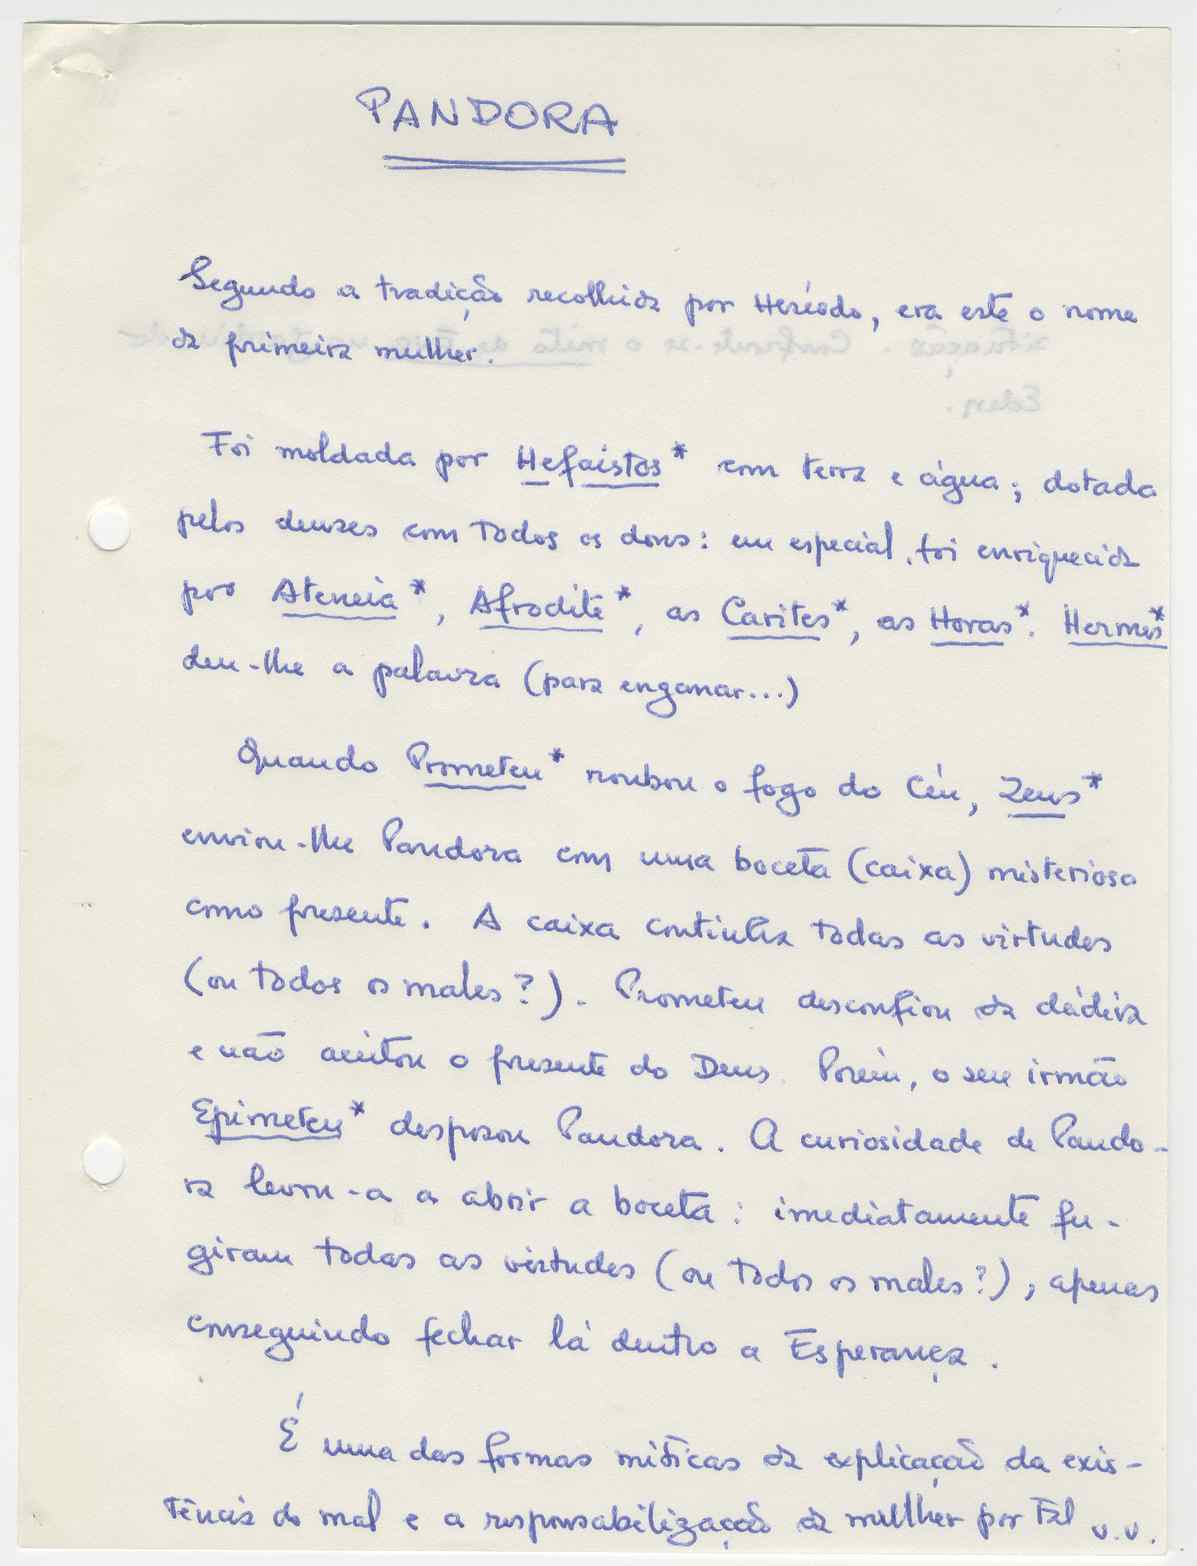 PANDORA
Segundo a tradição recolhida por Hesíodo, era este o nome
da primeira mulher.
Foi moldada por Hefaistos* com terra e água; dotada
pelos deuses com todos os dons: em especial, foi enriquecida
por Ateneia*, Afrodite*, as Carites*, as Horas*. Hermes*
deu-lhe a palavra (para enganar...)
Quando Prometeu* roubou o fogo do Céu, Zeus*
enviou-lhe Pandora com uma boceta (caixa) misteriosa
como presente. A caixa continha todas as virtudes
(ou todos os males?). Prometeu desconfiou da dádiva
e não aceitou o presente do Deus. Porém, o seu irmão
Epimeteu* desposou Pandora. A curiosidade de Pando-
ra levou-a a abrir a boceta: imediatamente fu-
giram todas as virtudes (ou todos os males?), apenas
conseguindo fechar lá dentro a Esperança.
É uma das formas míticas da explicação da exis-
tência do mal e a responsabilização da mulher por tal v.v.
situação. Confronte-se o mito de
Eden.